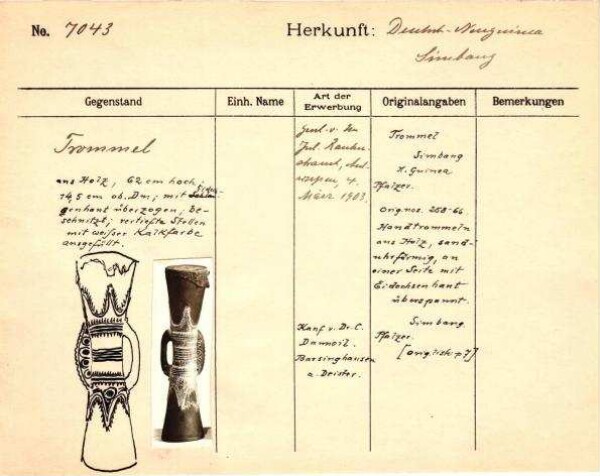 No. 7043
Herkunft: Deutsch-Neuguinea
Simbang
Gegenstand
Einh. Name
Art der Erwerbung
Originalangaben
Bemerkungen
Trommel
aus Holz, 62 cm hoch,
14,5 cm ob. Dm; mit
genhaut überzogen, be-
schnitzt; vertiefte Stellen
mit weißer Kalkfarbe
ausgefüllt.
März 1903.
Kauf v. Dr. C.
Barsinghausen
a. Deister.
Trommel
Simbang
N. Guinea
Pfalzer.
Orig. nos. 258-66
Handtrommeln
aus Holz, sand-
uhrförmig, an
einer Seite mit
Eidechsenhaut
überspannt.
Simbang.
Pfalzer.